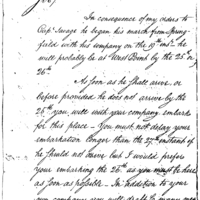 In consequence of my orders to
Capt Savage he began his march from Spring-
field with his company on the 19th inst. he
will probably be at West Point by the 25th or
26th
As soon as he shall arrive, or
before provided he does not arrive by the
26th you will with your company embark
for this place - You must not delay your
embarkation longer than the 27th instant if
he should not arrive but I would prefer
your embarking the 26th as you must be here
as soon as possible. In addition to your
own company you will